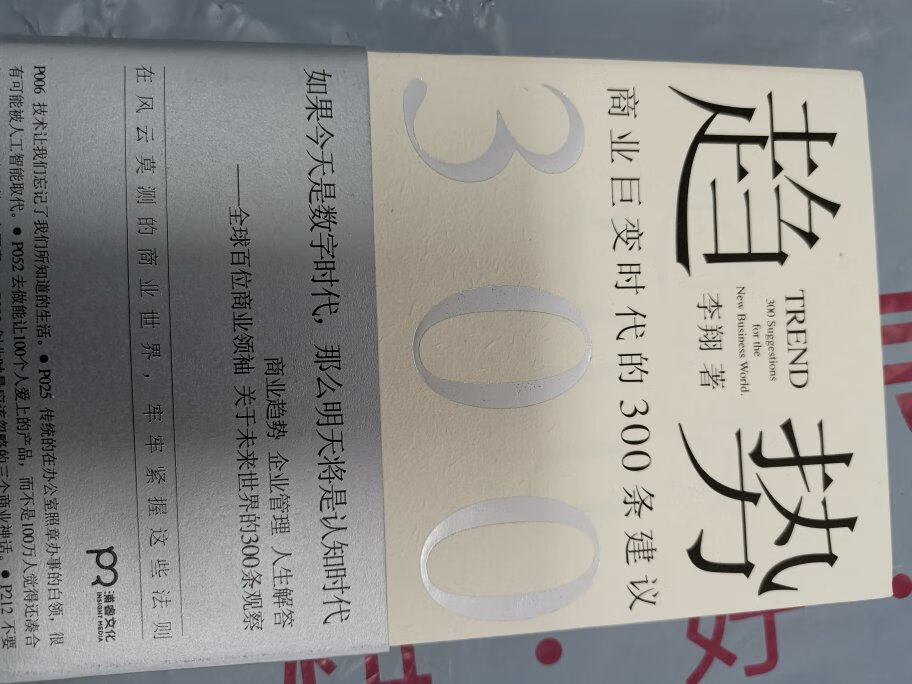 趋势
TREND
300 Suggestions
for the
New Business World.
李翔 著
商业巨变时代的300条建议
300
如果今天是数字时代，那么明天将是认知时代
商业趋势 企业管理 人生解答
——全球百位商业领袖 关于未来世界的300条观察
在风云莫测的商业世界，牢牢紧握这些法则
浦睿文化
INSIGHT MEDIA
P006 技术让我们忘记了我们所知道的生活。● P025 传统的在办公室照章办事的白领，很
有可能被人工智能取代。● P052 去做能让100个人爱上的产品，而不是100万人觉得还凑合
三个商业神话。● P212 不要
好